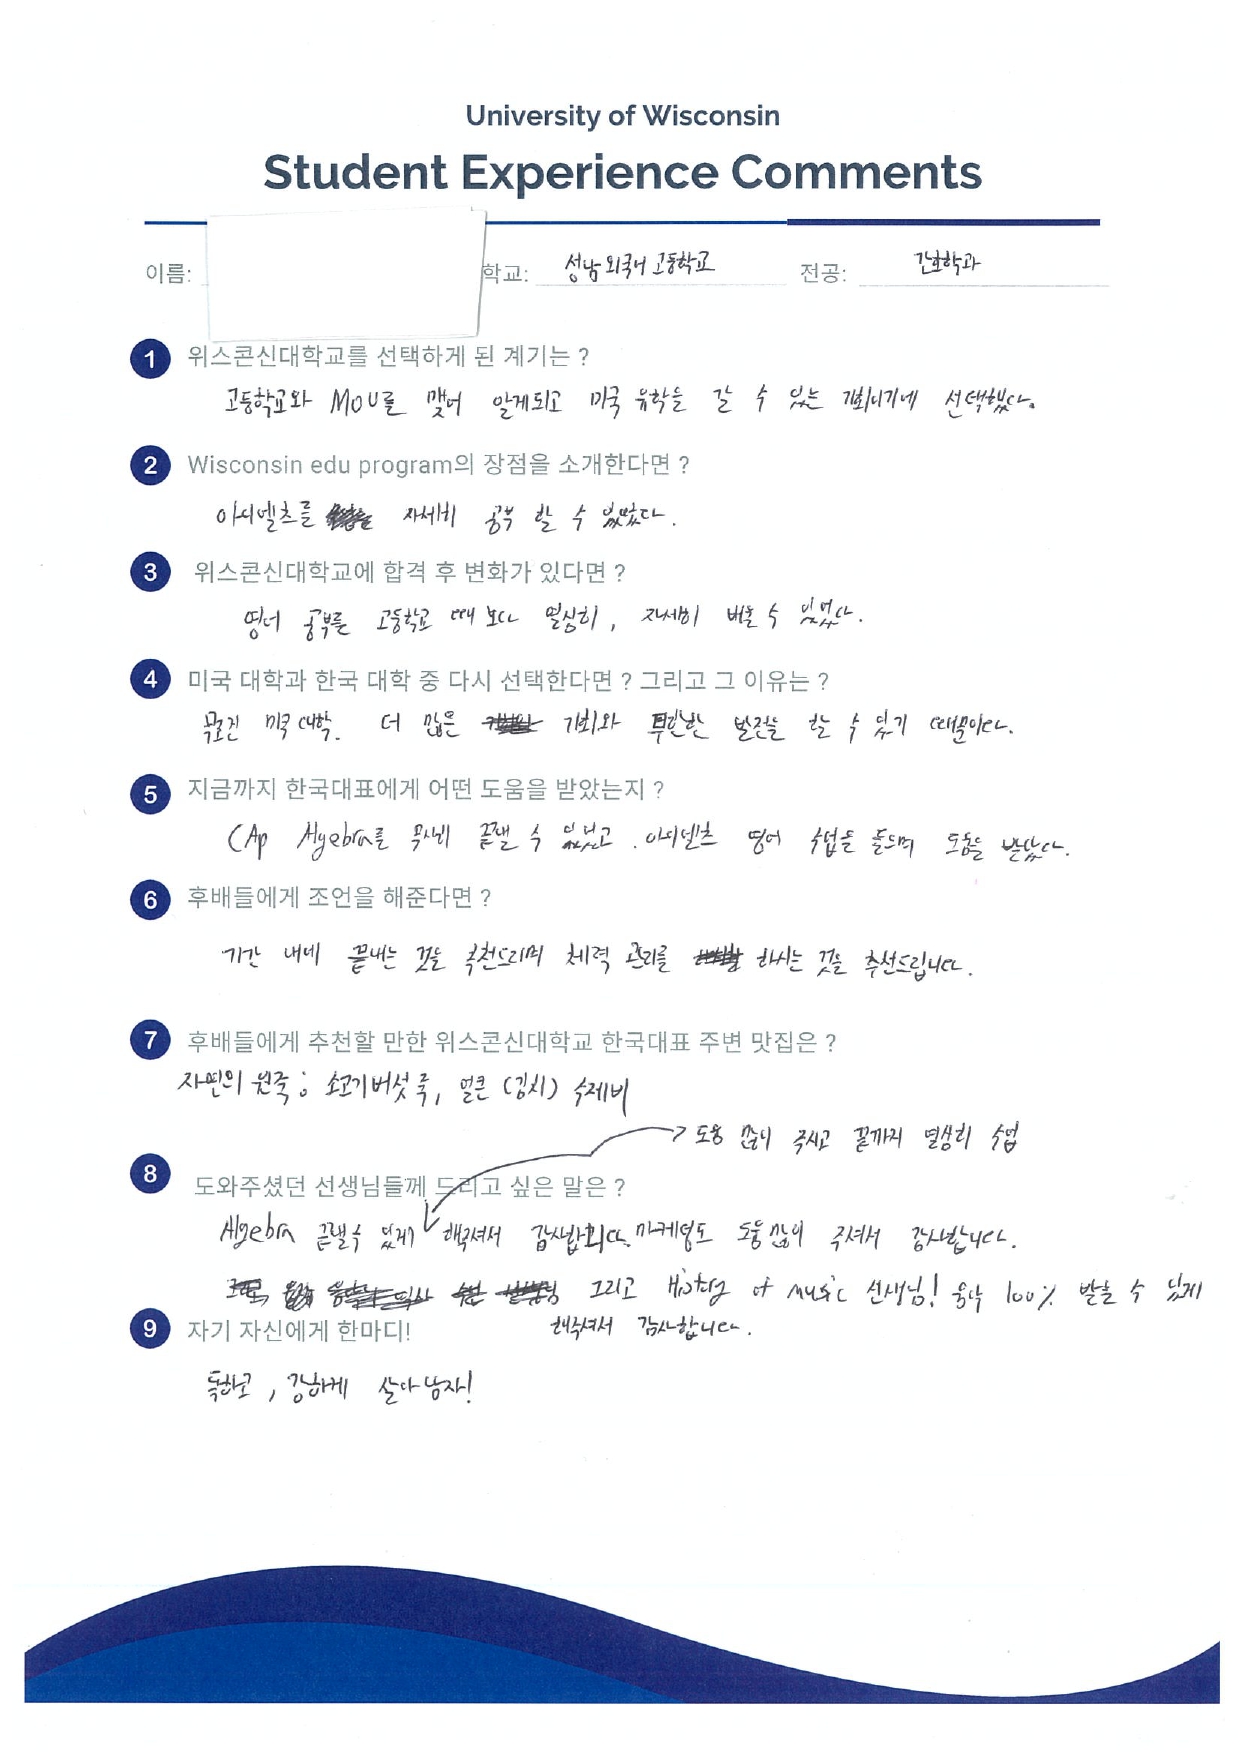 University of Wisconsin
Student Experience Comments
이름: 학교: 성남외국어고등학교 전공: 간호학과
1 위스콘신대학교를 선택하게 된 계기는 ?
고등학교와 MOU를 맺어 알게되고 미국 유학을 갈 수 있는 기회이기에 선택했다.
2 Wisconsin edu program의 장점을 소개한다면 ?
아이엘츠를 자세히 공부 할 수 있었다.
3 위스콘신대학교에 합격 후 변화가 있다면 ?
영어 공부를 고등학교 때 보다 열심히, 자세히 배울 수 있었다.
4 미국 대학과 한국 대학 중 다시 선택한다면 ? 그리고 그 이유는 ?
미국 대학. 더 많은 기회와 무한한 발전을 할 수 있기 때문이다.
5 지금까지 한국대표에게 어떤 도움을 받았는지 ?
CAP Algebra를 무사히 끝낼 수 있었고. 아이엘츠 영어 수업을 들으며 도움을 받았다.
6 후배들에게 조언을 해준다면 ?
기간 내에 끝내는 것을 추천드리며 체력 관리를 하시는 것을 추천드립니다.
7 후배들에게 추천할 만한 위스콘신대학교 한국대표 주변 맛집은 ?
자연의 원죽; 소고기버섯죽, 얼큰 (김치) 수제비
도움 많이 주시고 끝까지 열심히 수업
8 도와주셨던 선생님들께 드리고 싶은 말은 ?
Algebra 끝낼수 있게 해주셔서 감사합니다. 마케팅도 도움많이 주셔서 감사합니다.
그리고 History of music 선생님! 음악 100% 발휘할 수 있게
해주셔서 감사합니다.
9 자기 자신에게 한마디!
독하고, 강하게 살아남자!